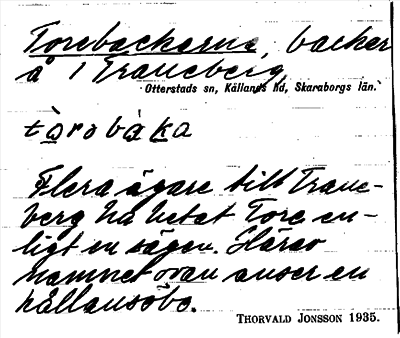 Torebackarne, backer
å 1 Traneberg
Otterstads sn, Kållands hd, Skaraborgs län.
tòrəbàka
Flera ägare till Trane-
berg ha hetat Tore en-
ligt en sägen. Härav
namnet ovan anser en
kållandsbo.
THORVALD JONSSON 1935.